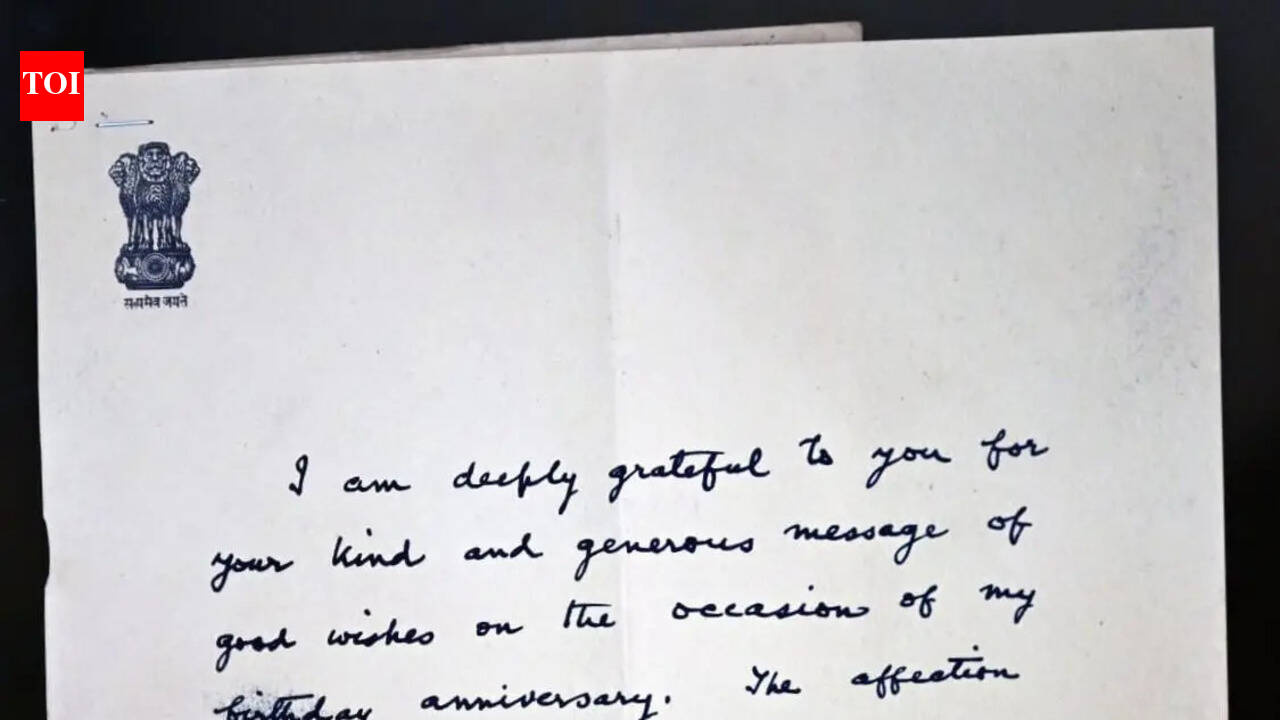 TOI
सत्यमेव जयते
I am deeply grateful to you for
your kind and generous message of
good wishes on the occasion of my
birthday anniversary. The affection